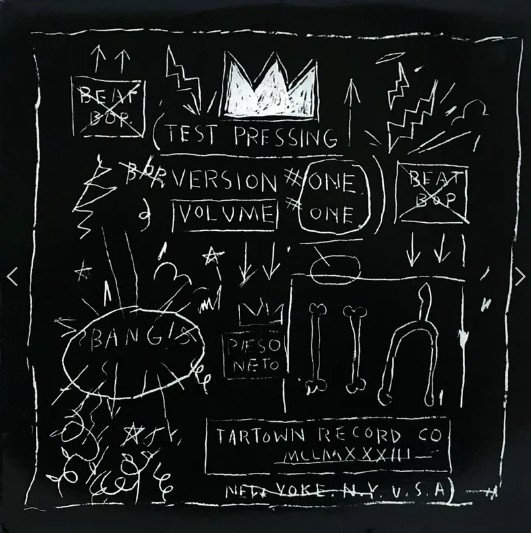 BEAT
BOP
(TEST PRESSING
BOP VERSION # ONE
VOLUME # ONE
BEAT
BOP
BANG!
PESO
NETO
TARTOWN RECORD CO
MCLMXXXIII
NEW YOKE. N.Y. U.S.A)